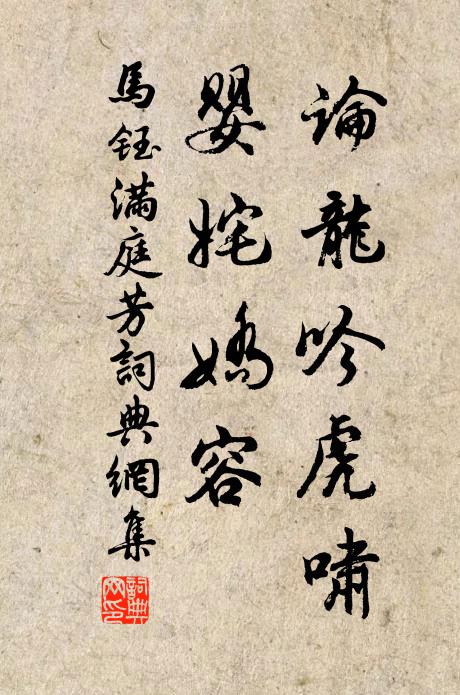 論龍吟虎嘯
嬰姹嬌容
馬鈺滿庭芳詞典網集
詞典网印